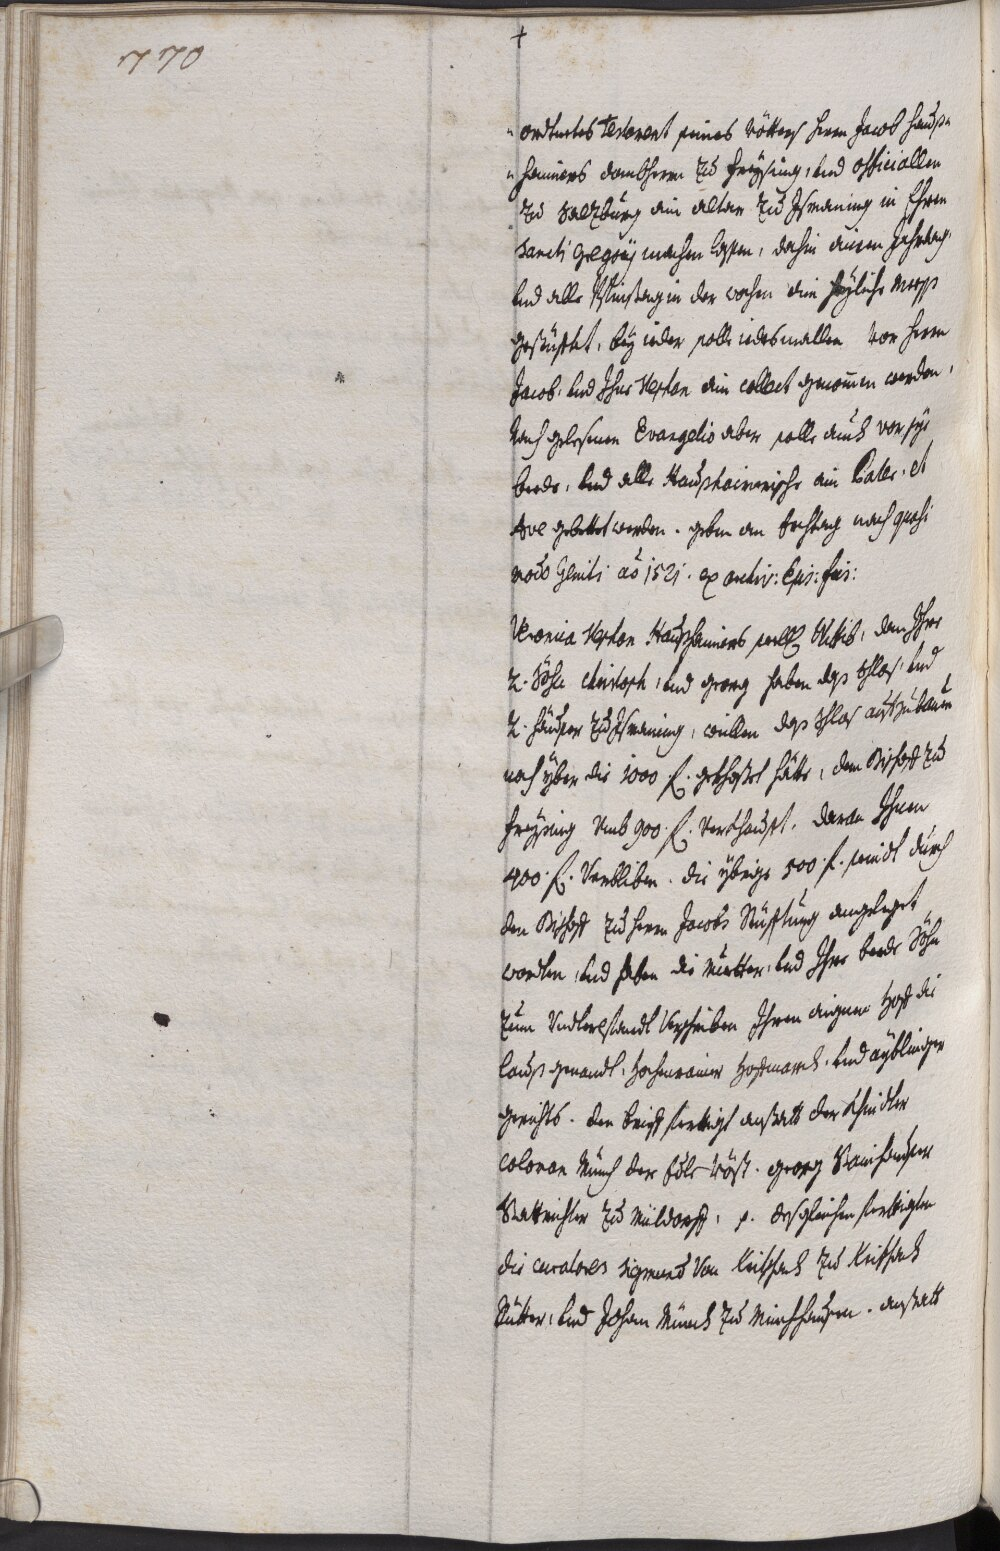 770
+
ordnetes Testament seines Vötters herrn Jacob Haus-
hainers dombherrn zu Freysing, und officiallen
zu Salzburg ain altar zu Ismaning in Ehren
Sancti Gregorij machen lassen, dahin ainen Jahrtag,
und alle Pfinstag in der wochen ain heyliche mess
gestüfftet, bey ieder solle iedesmallen vor herrn
Jacob, und Ihne Stephan ain collect genommen werden,
Nach gelesenen Evangelio aber solle auch vor sye
beede, und alle Haushaimerische ain Pater, et
Ave gebettet werden. geben am Erchtag nach quasi
modo Geniti ao 1521. ex archiv: Epis: fris:
Veronica Stephan Haushaimers seel. Wittib, dan Ihre
2. Söhn Christoph, und georg haben das schlos, und
2. häuser zu Ismaning, weillen das schlos aufzubauen
noch yber die 1000 f. gekhostet hätte, dem Bischoff zu
Freysing umb 900 f. verkhaufft, daran Ihnen
400 f. verbliben. die ybrige 500 f. seindt durch
den Bischoff zu herrn Jacobs Stüfftung angeleget
worden, und haben die Muetter, und Ihre beede Söhn
zum Underpfandt verschriben Ihren aignen Hoff die
Laus genandt, Hochenrainer Hoffmarch, und ayblinger
gerichts. den brieff fertiget anstatt der khinder
Coloman Münch der Edle Vösst. georg Stainhauser
Stattrichter zu Mülldorff, p. desgleichen fertigten
die curatores Sigmund Von Keitschach zu Keitschach
Ritter, und Johan Münch zu Münchhausen. anstatt